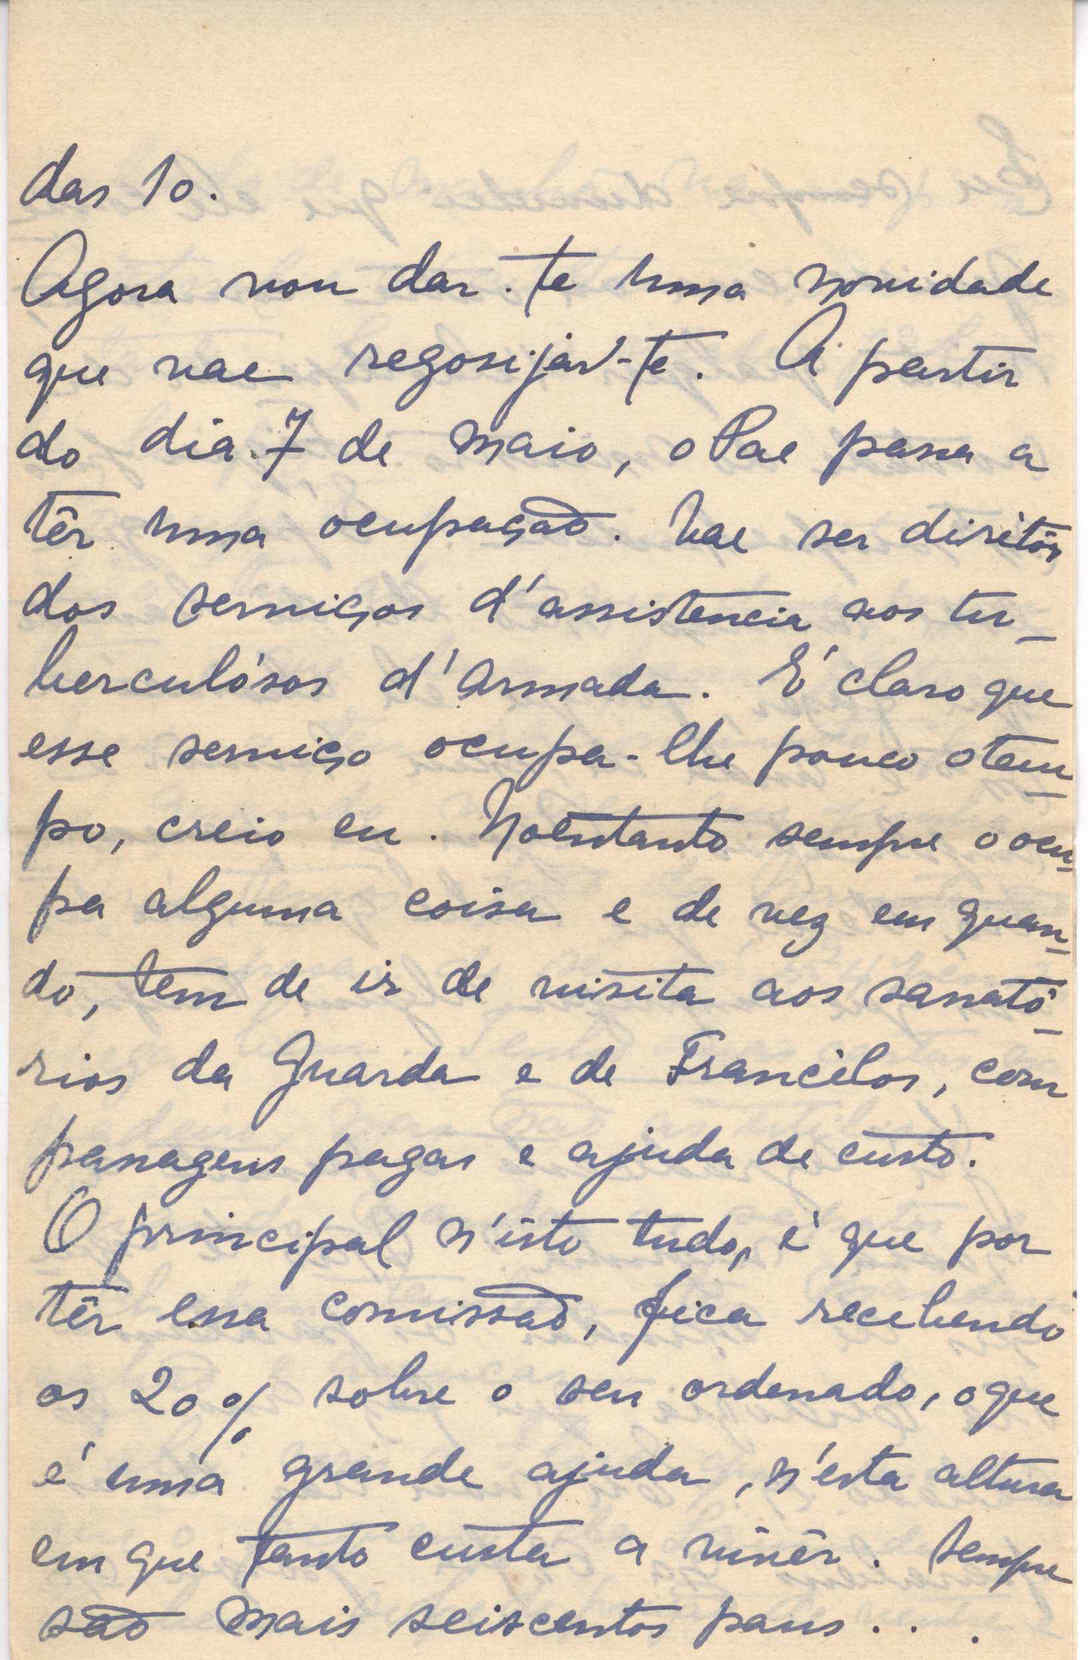 das 10.
Agora vou dar-te uma novidade
que vae regosijar-te. A partir
do dia 7 de Maio, o Pae passa a
têr uma ocupação. Vae ser diretôr
dos serviços d'assistencia aos tu-
berculósos d'Armada. É claro que
esse serviço ocupa-lhe pouco o tem-
po, creio eu. Noentanto sempre o ocu-
pa alguma coisa e de vez em quan-
do, tem de ir de visita aos sanató-
rios da Guarda e de Francêlos, com
passagens pagas e ajuda de custo.
O principal n'isto tudo, é que por
têr essa comissão, fica recebendo
os 20% sobre o seu ordenado, o que
é uma grande ajuda, n'esta altura
em que tanto custa a vivêr. Sempre
são mais seiscentos paus...